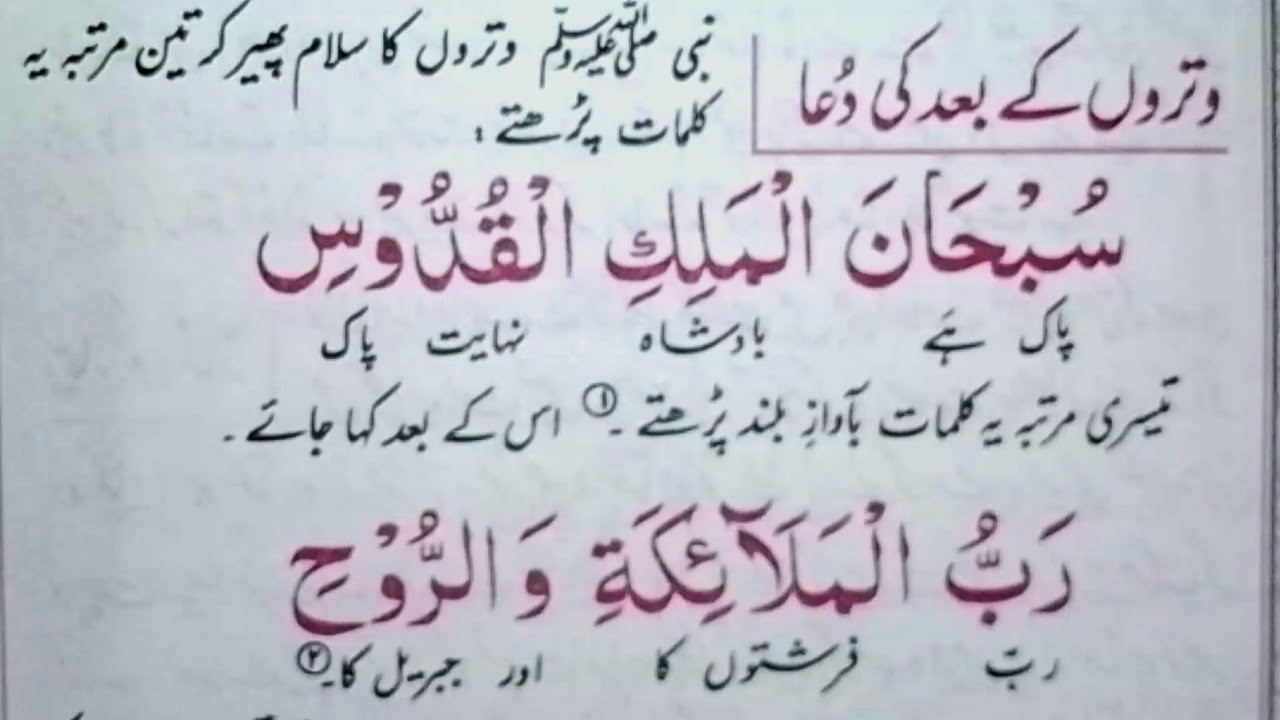 وتروں کے بعد کی دُعا
نبی ﷺ وتروں کا سلام پھیر کر تین مرتبہ یہ
کلمات پڑھتے :
سُبْحَانَ الْمَلِكِ الْقُدُّوْسِ
پاک ہَے بادشاہ نہایت پاک
تیسری مرتبہ یہ کلمات بآوازِ بلند پڑھتے ۔① اس کے بعد کہا جائے ۔
رَبُّ الْمَلَآئِكَةِ وَالرُّوْحِ
ربّ فرشتوں کا اور جبریل کا۔②